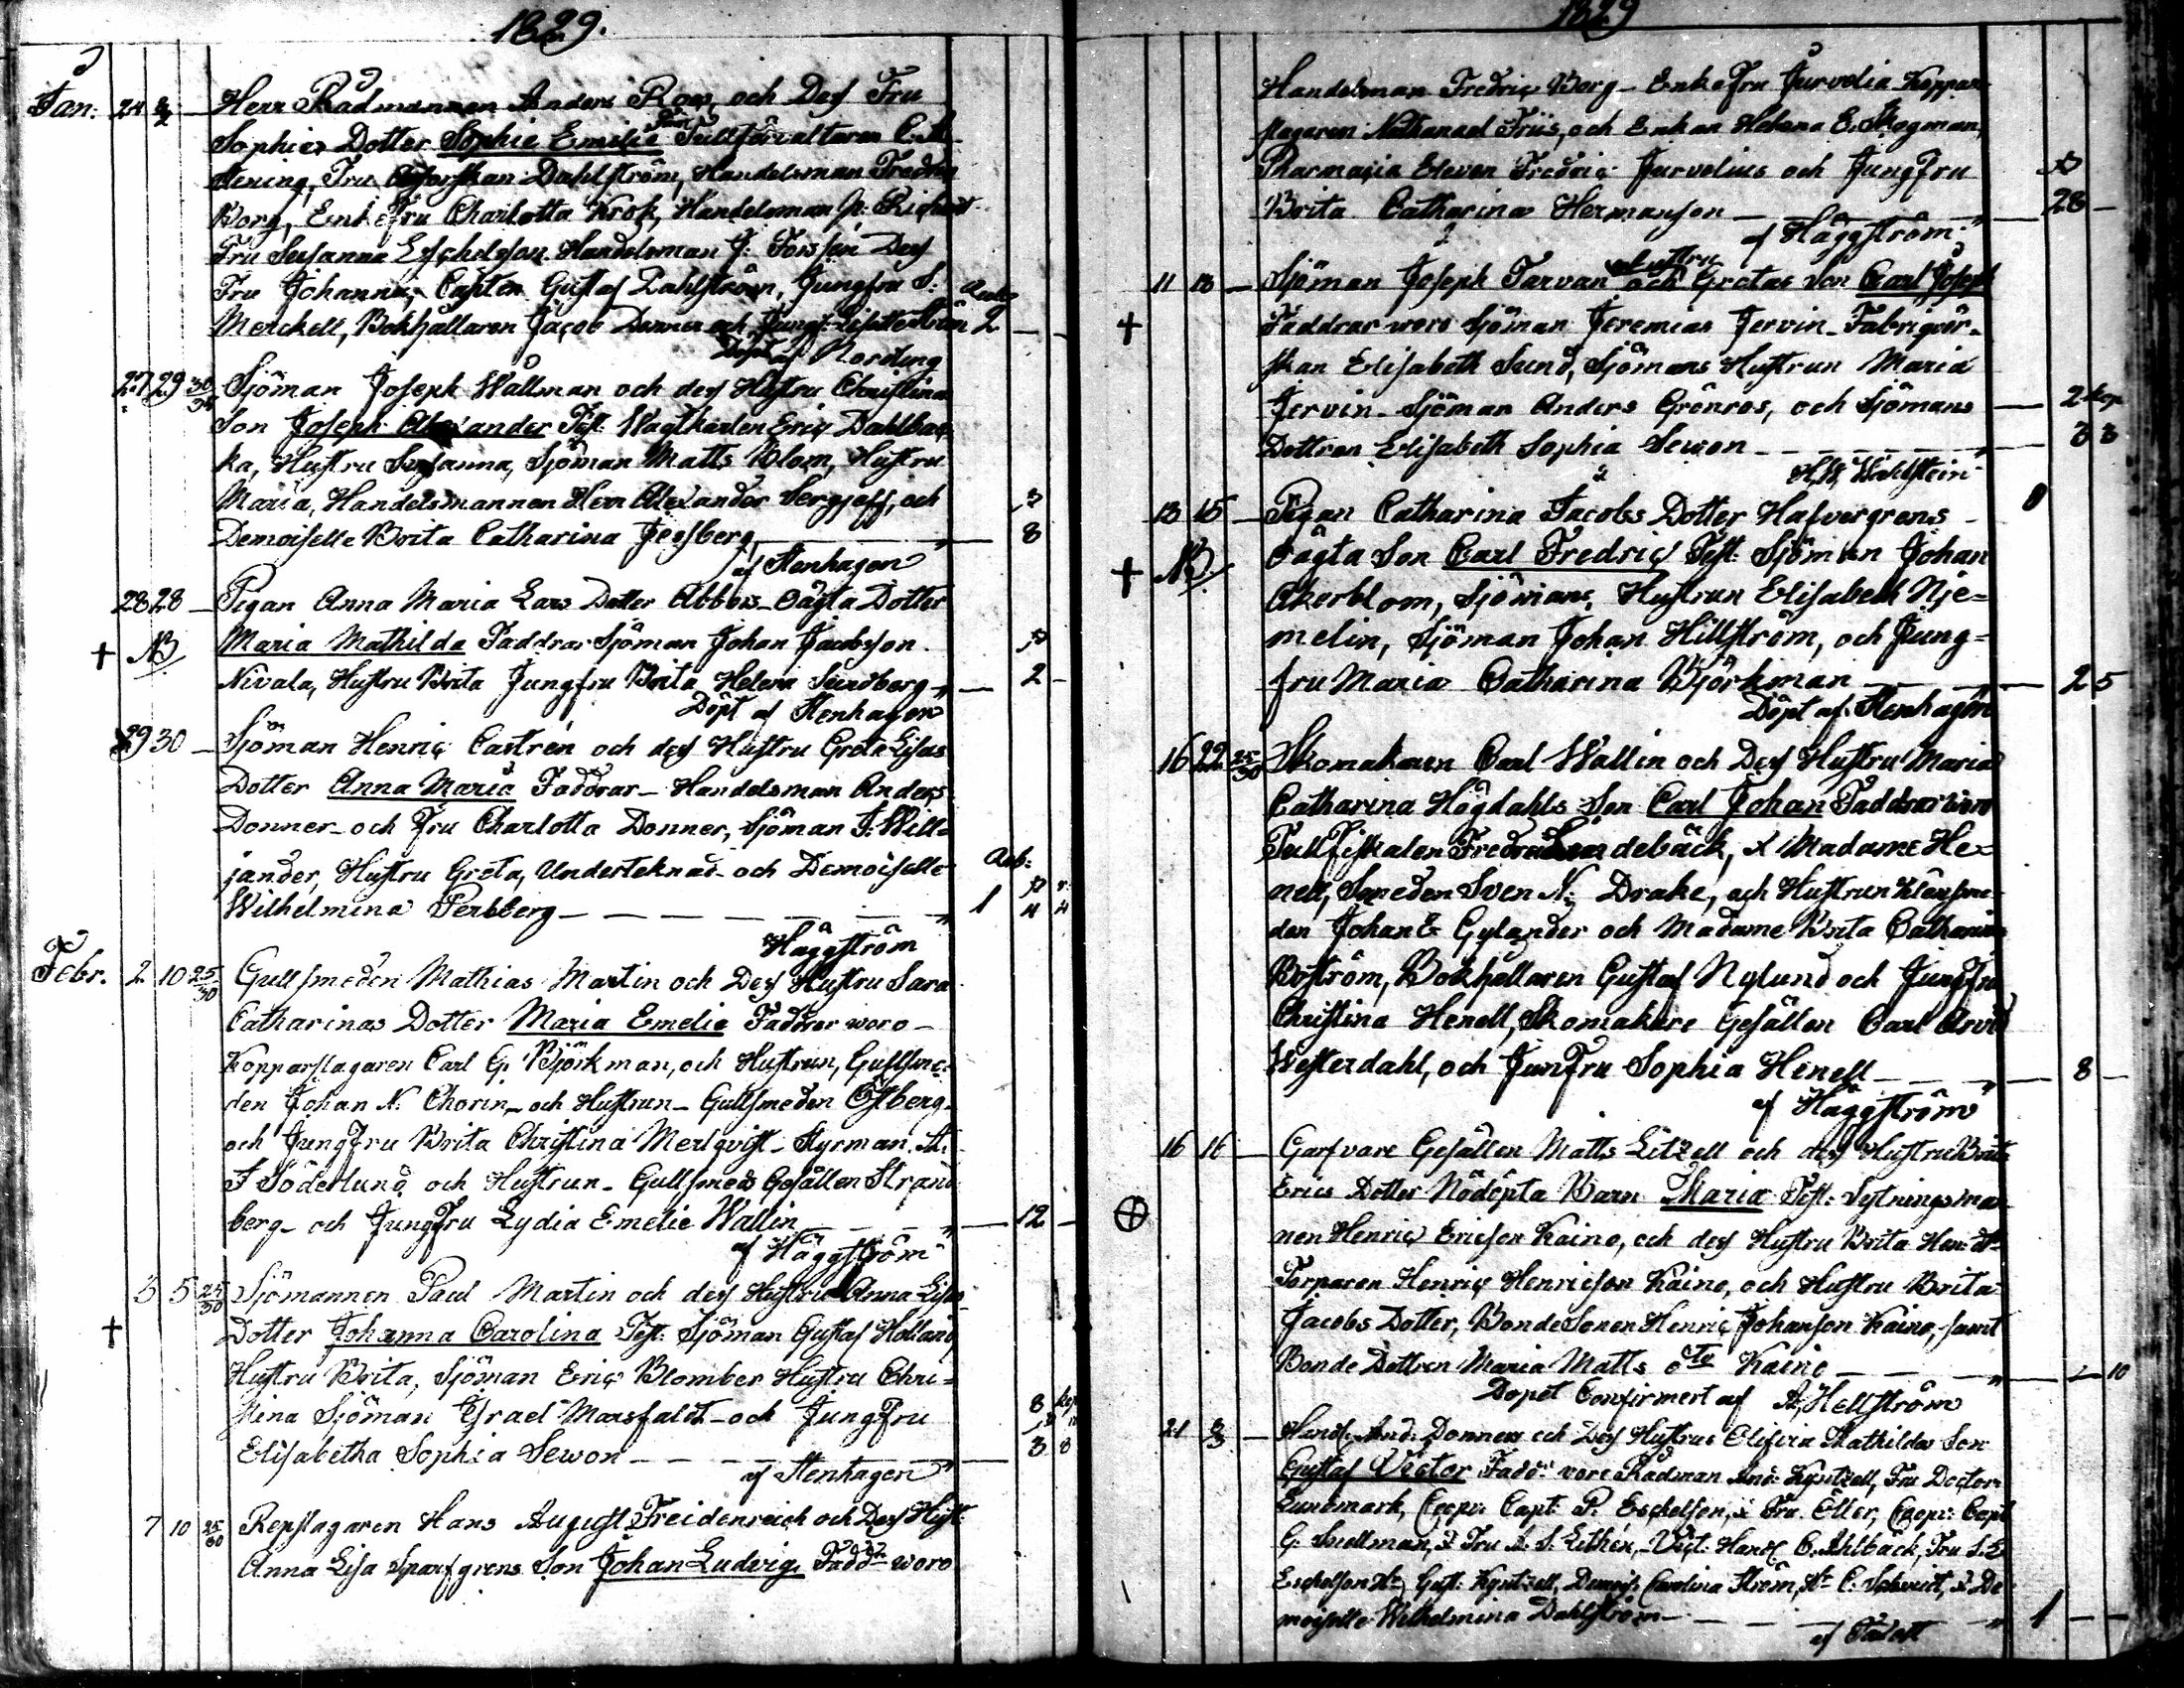 1829.
Jan: 24 2/2 Herr Rådmannen Anders Roos, och Dess Fru
Sophies Dotter Sophie Emilie Tullförvaltaren C. A.
Fru Dahlström, Handelsman Fredric
Borg, Enkefru Charlotta Krok, Handelsman
Fru Susanna Eschelsson Handelsman J: Forssén Dess
Fru Johanna, Capten Gustaf Dahlström, Jungfru S:
Merckell, Bokhållaren Jacob Donner och Jungf: Lisette Ström 2
Döpt af Nordling
27 29 Sjöman Joseph Wallman och dess Hustru Christina
Son Joseph Alexander Test: Wagtkarlen Eric Dahlbac-
ka, Hustru Susanna, Sjöman Matts Blom, Hustru
Maria, Handelsmannen Herr Alexander Sergejeff, och
Demoiselle Brita Catharina 8
af Stenhagen
28 28 Pigan Anna Maria Lars Dotter Abbors Oägta Dotter
+ NB Maria Mathilda Faddrar Sjöman Johan Jacobsson
Nivala, Hustru Brita Jungfru Brita Helena Sundberg 2
Döpt af Stenhagen
29 30 Sjöman Henric Castrén och dess Hustru Greta Lisas
Dotter Anna Maria Faddrar Handelsman Anders
Donner och Fru Charlotta Donner, Sjöman J: Will-
jander, Hustru Greta, Underteknad och Demoiselle
Wilhelmina 1 4 4
Häggström
Febr. 2 10 25/30 Gullsmeden Mathias Martin och Dess Hustru Sara
Catharinas Dotter Maria Emelie Faddrar woro
Kopparslagaren Carl G: Björkman, och Hustrun, Gullsme-
den Johan N: Chorin och Hustrun Gullsmeden Östberg
och Jungfru Brita Christina Merlqvist Styrman A:
J Söderlund och Hustrun Gullsmeds Gesällen Strand
berg och Jungfru Lydia Emelie Wallin 12
af Häggström
5 5 25/30 Sjömannen Paul Martin och dess Hustru Anna Lisas
+ Dotter Johanna Carolina Test: Sjöman Gustaf Holland
Hustru Brita, Sjöman Eric Blomber Hustru Chri-
stina Sjöman Israel Marsfaldt och Jungfru 8 kop
Elisabetha Sophia Sewon 3 8
af Stenhagen
7 10 25/30 Repslagaren Hans August Freidenreich och Dess Hust:
Anna Lisa Sparfgrens Son Johan Ludvig Fadd: woro
1829
Handelsman Fredric Borg Enkefru Jurvelia Koppar-
slagaren Nathanael Friis, och Enkan Helena E. Skogman,
Pharmacia Eleven Fredric Jurvelius och Jungfru
Brita Catharina Hermanson 28
af Häggström
11 13 Sjöman Joseph Tarvan och hustru Gretas Son Carl Joseph
+ Faddrar woro Sjöman Jeremias Jervin Fabriqvör-
skan Elisabeth Sund, Sjömans Hustrun Maria
Jervin Sjöman Anders Grönros, och Sjömans 2 kop
Dottren Elisabeth Sophia Sewon 3 3
13 15 Pigan Catharina Jacobs Dotter Hafvergrens
+ NB Oägta Son Carl Fredric Test: Sjöman Johan
Åkerblom, Sjömans Hustrun Elisabeth Nje-
melin, Sjöman Johan Hillström, och Jung-
fru Maria Catharina Björkman 25
Döpt af Stenhagen
16 22 25/30 Skomakaren Carl Wallin och Dess Hustru Maria
Catharina Högdahls Son Carl Johan Faddrar woro
Tullfiskalen Fredric Lindebäck, & Madame He-
nell, Smeden Sven N: Drake, och Hustrun Klensme-
den Johan E Gylander och Madame Brita Catharina
Boström, Bokhållaren Gustaf Nylund och Jungfru
Christina Henell, Skomakare Gesällen Carl Arvid
Westerdahl, och Junfru Sophia Henell 8
af Häggström
16 16 Garfvare Gesällen Matts Litzell och dess Hustru Brita
Erics Dotter Nödöpta Barn Maria Test: Sytningsman-
nen Henric Ericson Kaino, och dess Hustru Brita Hen: dr
Torparen Henric Henricson Kaino, och Hustru Brita
Jacobs Dotter, BondeSonen Henric Johanson Kaino, samt
Bonde Dottren Maria Matts dto Kaino 10
Döpet Confirmert af A, Hellström
21 Handl: And: Donner och Dess Hustrus Elifvira Mathildas Son
Gustaf Victor Fadd: vore Rådman And: Kyntzell, Fru Doctor
Lundmark, Coopv: Capt: P. Eschelson, & Fru Öller, Coopv: Capt
G: Snellman, & Fru A. S. Lithén, Vict: Handl: C. Ahlbäck, Fru S. E
Eschelson Hr Gust: Kyntzell, Demois: Carolina Ström, Hr C: Schmidt, & De-
moiselle Wilhelmina Dahlström 1